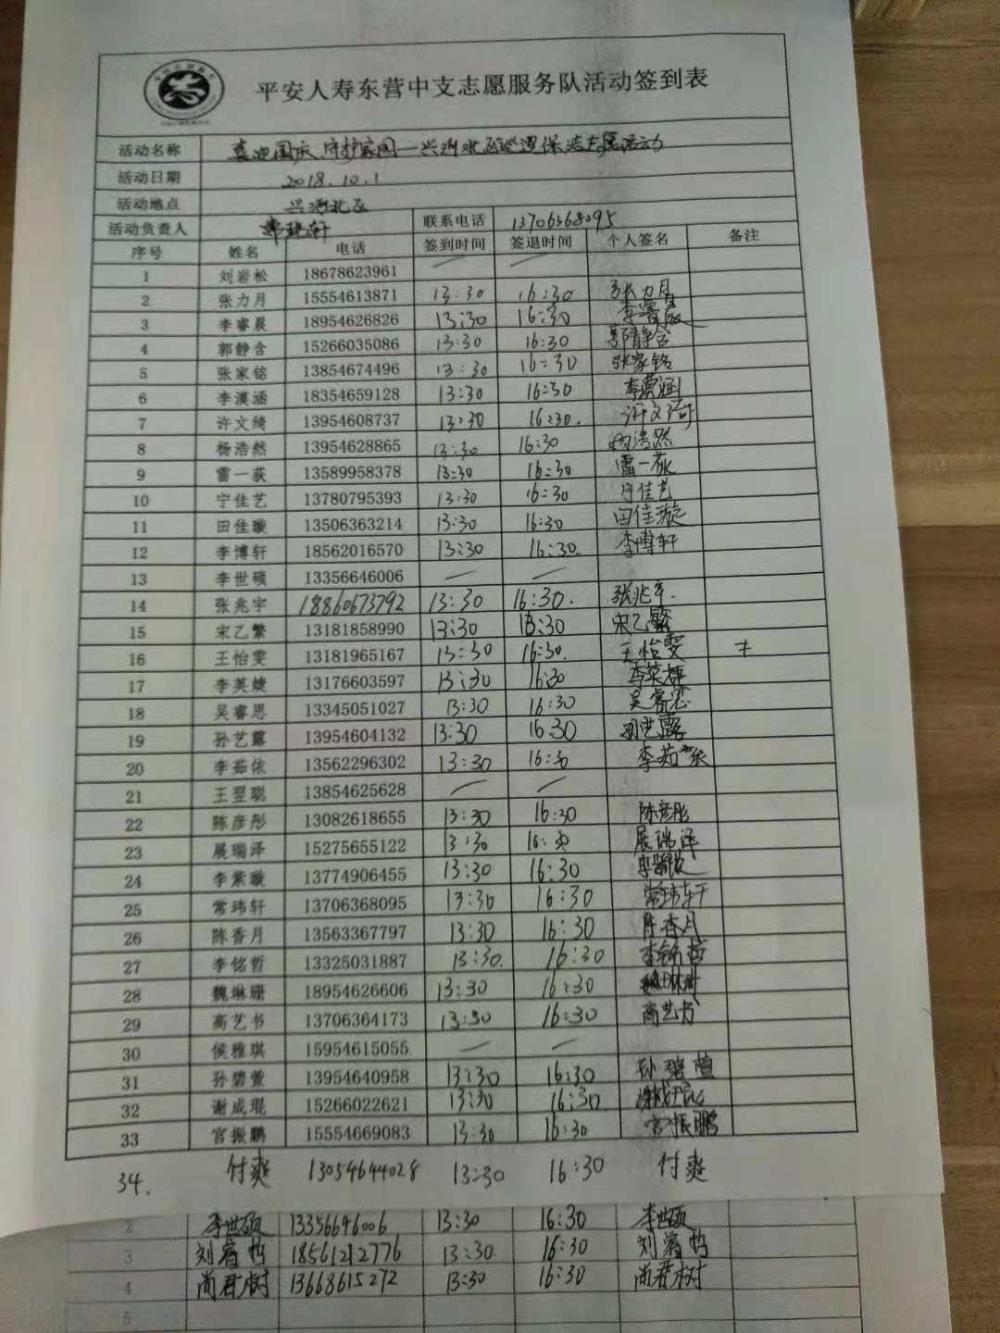 平安人寿东营中支志愿服务队活动签到表
活动名称 喜迎国庆 守护家园—兴河北区巡逻保洁志愿活动
活动日期 2018.10.1
活动地点 兴河北区
活动负责人 常玮轩 联系电话 13706368095
序号 姓名 电话 签到时间 签退时间 个人签名 备注
1 刘岩松 18678623961 — —
2 张力月 15554613871 13:30 16:30 张力月
3 李睿晨 18954626826 13:30 16:30 李睿晨
4 郭静含 15266035086 13:30 16:30 郭静含
5 张家铭 13854674496 13:30 16:30 张家铭
6 李漠涵 18354659128 13:30 16:30 李漠涵
7 许文绮 13954608737 13:30 16:30. 许文绮
8 杨浩然 13954628865 13:30 16:30 杨浩然
9 雷一荻 13589958378 13:30 16:30 雷一荻
10 宁佳艺 13780795393 13:30 16:30 宁佳艺
11 田佳璇 13506363214 13:30 16:30 田佳璇
12 李博轩 18562016570 13:30 16:30. 李博轩
13 李世硕 13356646006 — —
14 张兆宇 18860673792 13:30 16:30. 张兆宇.
15 宋乙繁 13181858990 13:30 16:30 宋乙繁
16 王怡雯 13181965167 13:30 16:30. 王怡雯
17 李英婕 13176603597 13:30 16:30 李英婕
18 吴睿思 13345051027 13:30 16:30 吴睿思
19 孙艺露 13954604132 13:30 16:30 孙艺露
20 李茹依 13562296302 13:30 16:30 李茹依
21 王翌聪 13854625628 — —
22 陈彦彤 13082618655 13:30 16:30 陈彦彤
23 展瑞泽 15275655122 13:30 16:30 展瑞泽
24 李紫璇 13774906455 13:30 16:30 李紫璇
25 常玮轩 13706368095 13:30 16:30 常玮轩
26 陈香月 13563367797 13:30 16:30 陈香月
27 李铭哲 13325031887 13:30. 16:30 李铭哲
28 魏琳珊 18954626606 13:30 16:30 魏琳珊
29 高艺书 13706364173 13:30 16:30 高艺书
30 侯雅琪 15954615055 — —
31 孙碧萱 13954640958 13:30 16:30 孙碧萱
32 谢成琨 15266022621 13:30 16:30. 谢成琨
33 官振鹏 15554669083 13:30 16:30 官振鹏
34. 付爽 13054644028 13:30 16:30 付爽
2 李世硕 13356646006 13:30 16:30 李世硕
3 刘睿哲 18561212776 13:30 16:30 刘睿哲
4 尚君树 13668615272 13:30 16:30 尚君树
5